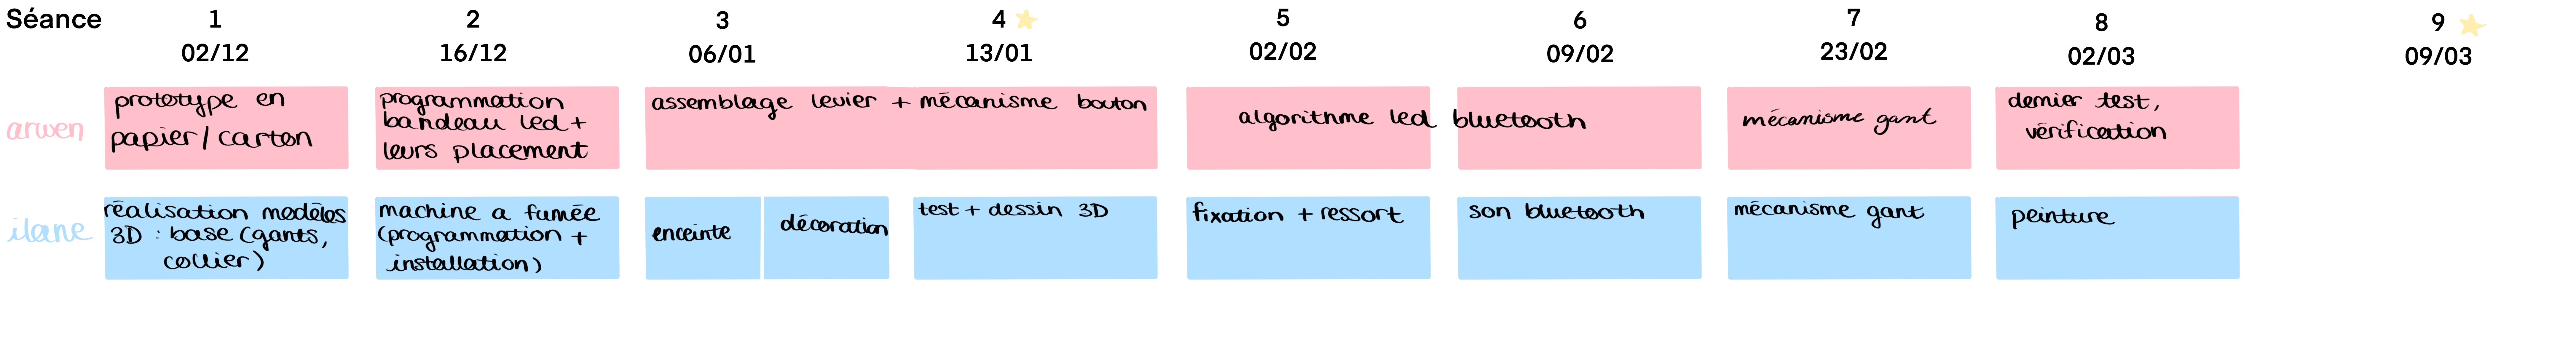 Séance 1 2 3 4 5 6 7 8 9
02/12 16/12 06/01 13/01 02/02 09/02 23/02 02/03 09/03
arwen
prototype en
papier/carton
programmation
bandeau led +
leurs placement
assemblage levier + mécanisme bouton
algorithme led bluetooth
mécanisme gant
dernier test,
vérification
ilane
réalisation modèles
3D : base (gants,
collier)
machine a fumée
(programmation +
installation)
enceinte
décoration
test + dessin 3D
fixation + ressort
son bluetooth
mécanisme gant
peinture